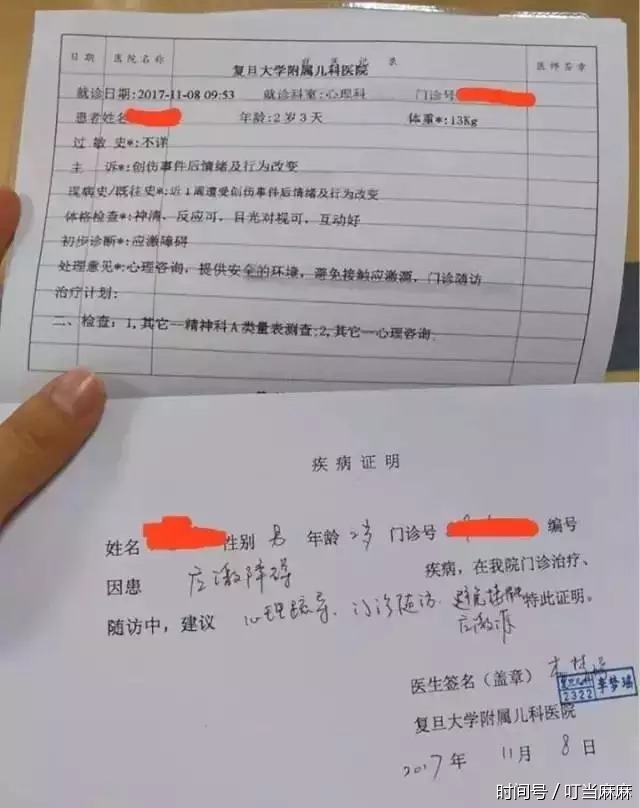 日期 医院名称 记录 医师签章
复旦大学附属儿科医院
就诊日期:2017-11-08 09:53 就诊科室:心理科 门诊号
患者姓名 年龄:2岁3天 体重*:13Kg
过敏史*:不详
主 诉*:创伤事件后情绪及行为改变
现病史/既往史*:近1周遭受创伤事件后情绪及行为改变
体格检查*:神清、反应可,目光对视可,互动好
初步诊断*:应激障碍
处理意见*:心理咨询,提供安全的环境,避免接触应激源,门诊随访
治疗计划:
二、检查:1,其它—精神科A类量表测查;2,其它—心理咨询.
疾病证明
姓名 性别 男 年龄 2岁 门诊号 编号
因患 应激障碍 疾病,在我院门诊治疗、
随访中,建议 心理疏导、门诊随访. 避免接触 特此证明。
应激源
医生签名(盖章)
2322
复旦大学附属儿科医院
2017年 11月 8日
时间号 / 叮当麻麻